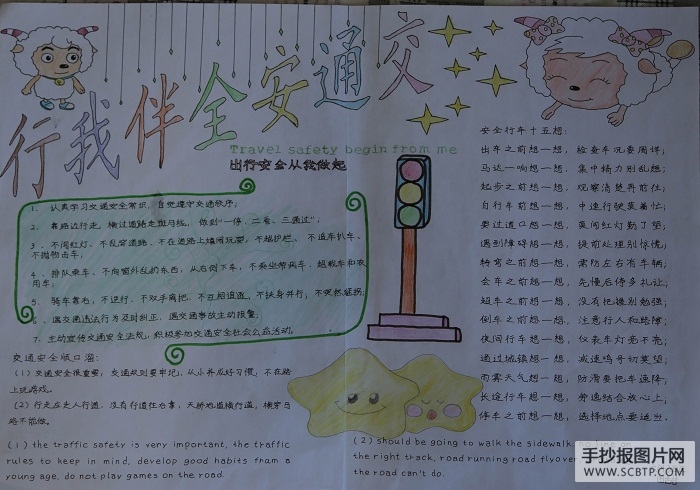 交通安全伴我行
Travel safety begin from me
出行安全从我做起
1、认真学习交通安全常识，自觉遵守交通秩序；
2、靠路边行走，横过道路走斑马线，做到“一停、二看、三通过”；
3、不闯红灯、不乱穿道路、不在道路上嬉闹玩耍、不越护栏、不追车扒车、
不抛物击车；
4、排队乘车、不向窗外乱扔东西，从右侧下车，不乘坐带病车、超载车和农
用车；
5、骑车靠右，不逆行、不双手离把、不互相追逐、不扶身并行，不突然猛拐；
6、遇交通违法行为及时纠正，遇交通事故主动报警；
7、主动宣传交通安全法规，积极参加交通安全社会公益活动。
交通安全顺口溜：
(1)交通安全很重要，交通规则要牢记，从小养成好习惯，不在路
上玩游戏。
(2)行走应走人行道，没有行道往右靠，天桥地道横行道，横穿马
路不能做。
(1) the traffic safety is very important, the traffic
rules to keep in mind, develop good habits fham a
young age, do not play games on the road.
(2) should be going to walk the sidewalk, no line on
the right track, road running road flyover
the road can't do.
安全行车十五想：
出车之前想一想，检查车况要周详；
马达一响想一想，集中精力别乱想；
起步之前想一想，观察清楚再前往；
自行车前想一想，中速行驶莫着忙；
要过道口想一想，莫闯红灯勤了望；
遇到障碍想一想，提前处理别惊慌；
转弯之前想一想，需防左右有车辆；
会车之前想一想，先慢后停多礼让；
超车之前想一想，没有把握别勉强；
倒车之前想一想，注意行人和路障；
夜间行车想一想，仪表车灯亮不亮；
通过城镇想一想，减速鸣号切莫望；
雨雾天气想一想，防滑要把车速降；
长途行车想一想，劳逸结合放心上；
停车之前想一想，选择地点要适当。
手抄报图片网
WWW.SCBTP.COM